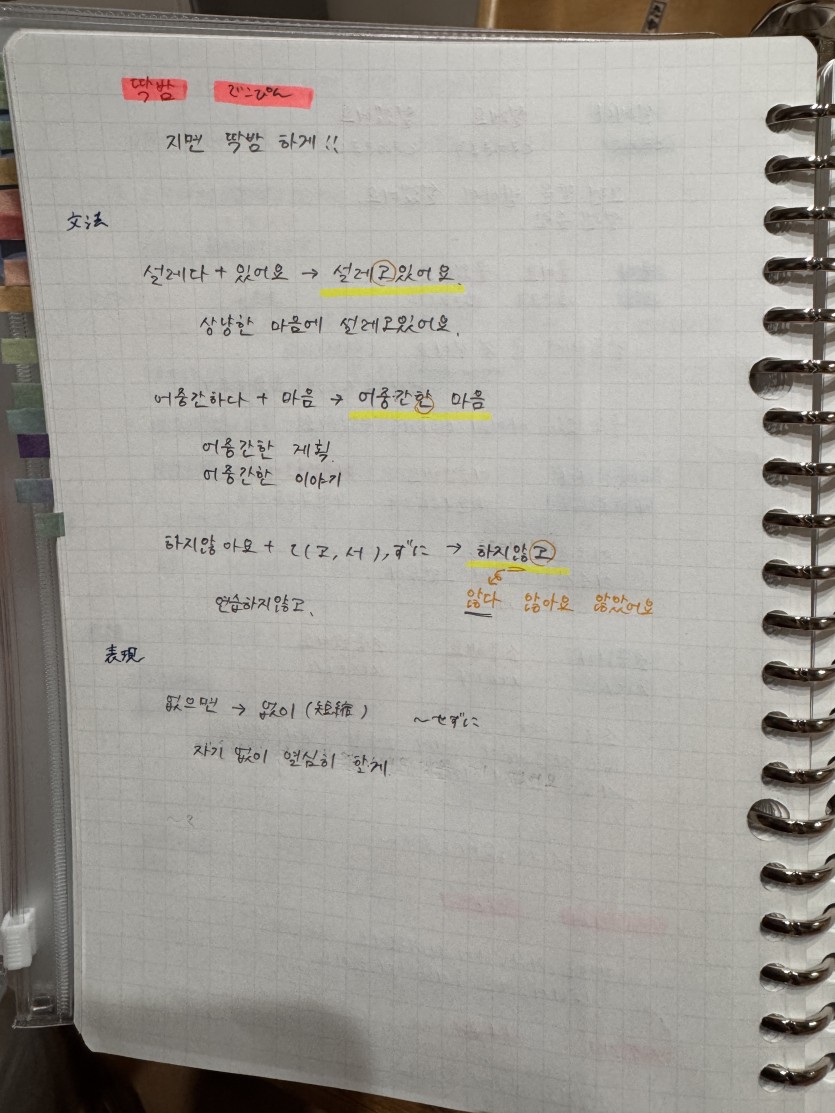 딱밤 でこぴん
지면 딱밤 하게!!
文法
설레다 + 있어요 → 설레고있어요.
상냥한 마음에 설레고있어요.
어중간하다 + 마음 → 어중간한 마음
어중간한 계획.
어중간한 이야기
하지않아요 + て(고, 서), ずに → 하지않고
않다 않아요 않았어요
연습하지않고.
表現
없으면 → 없이 (短縮) ~せずに
자기 없이 열심히 할게